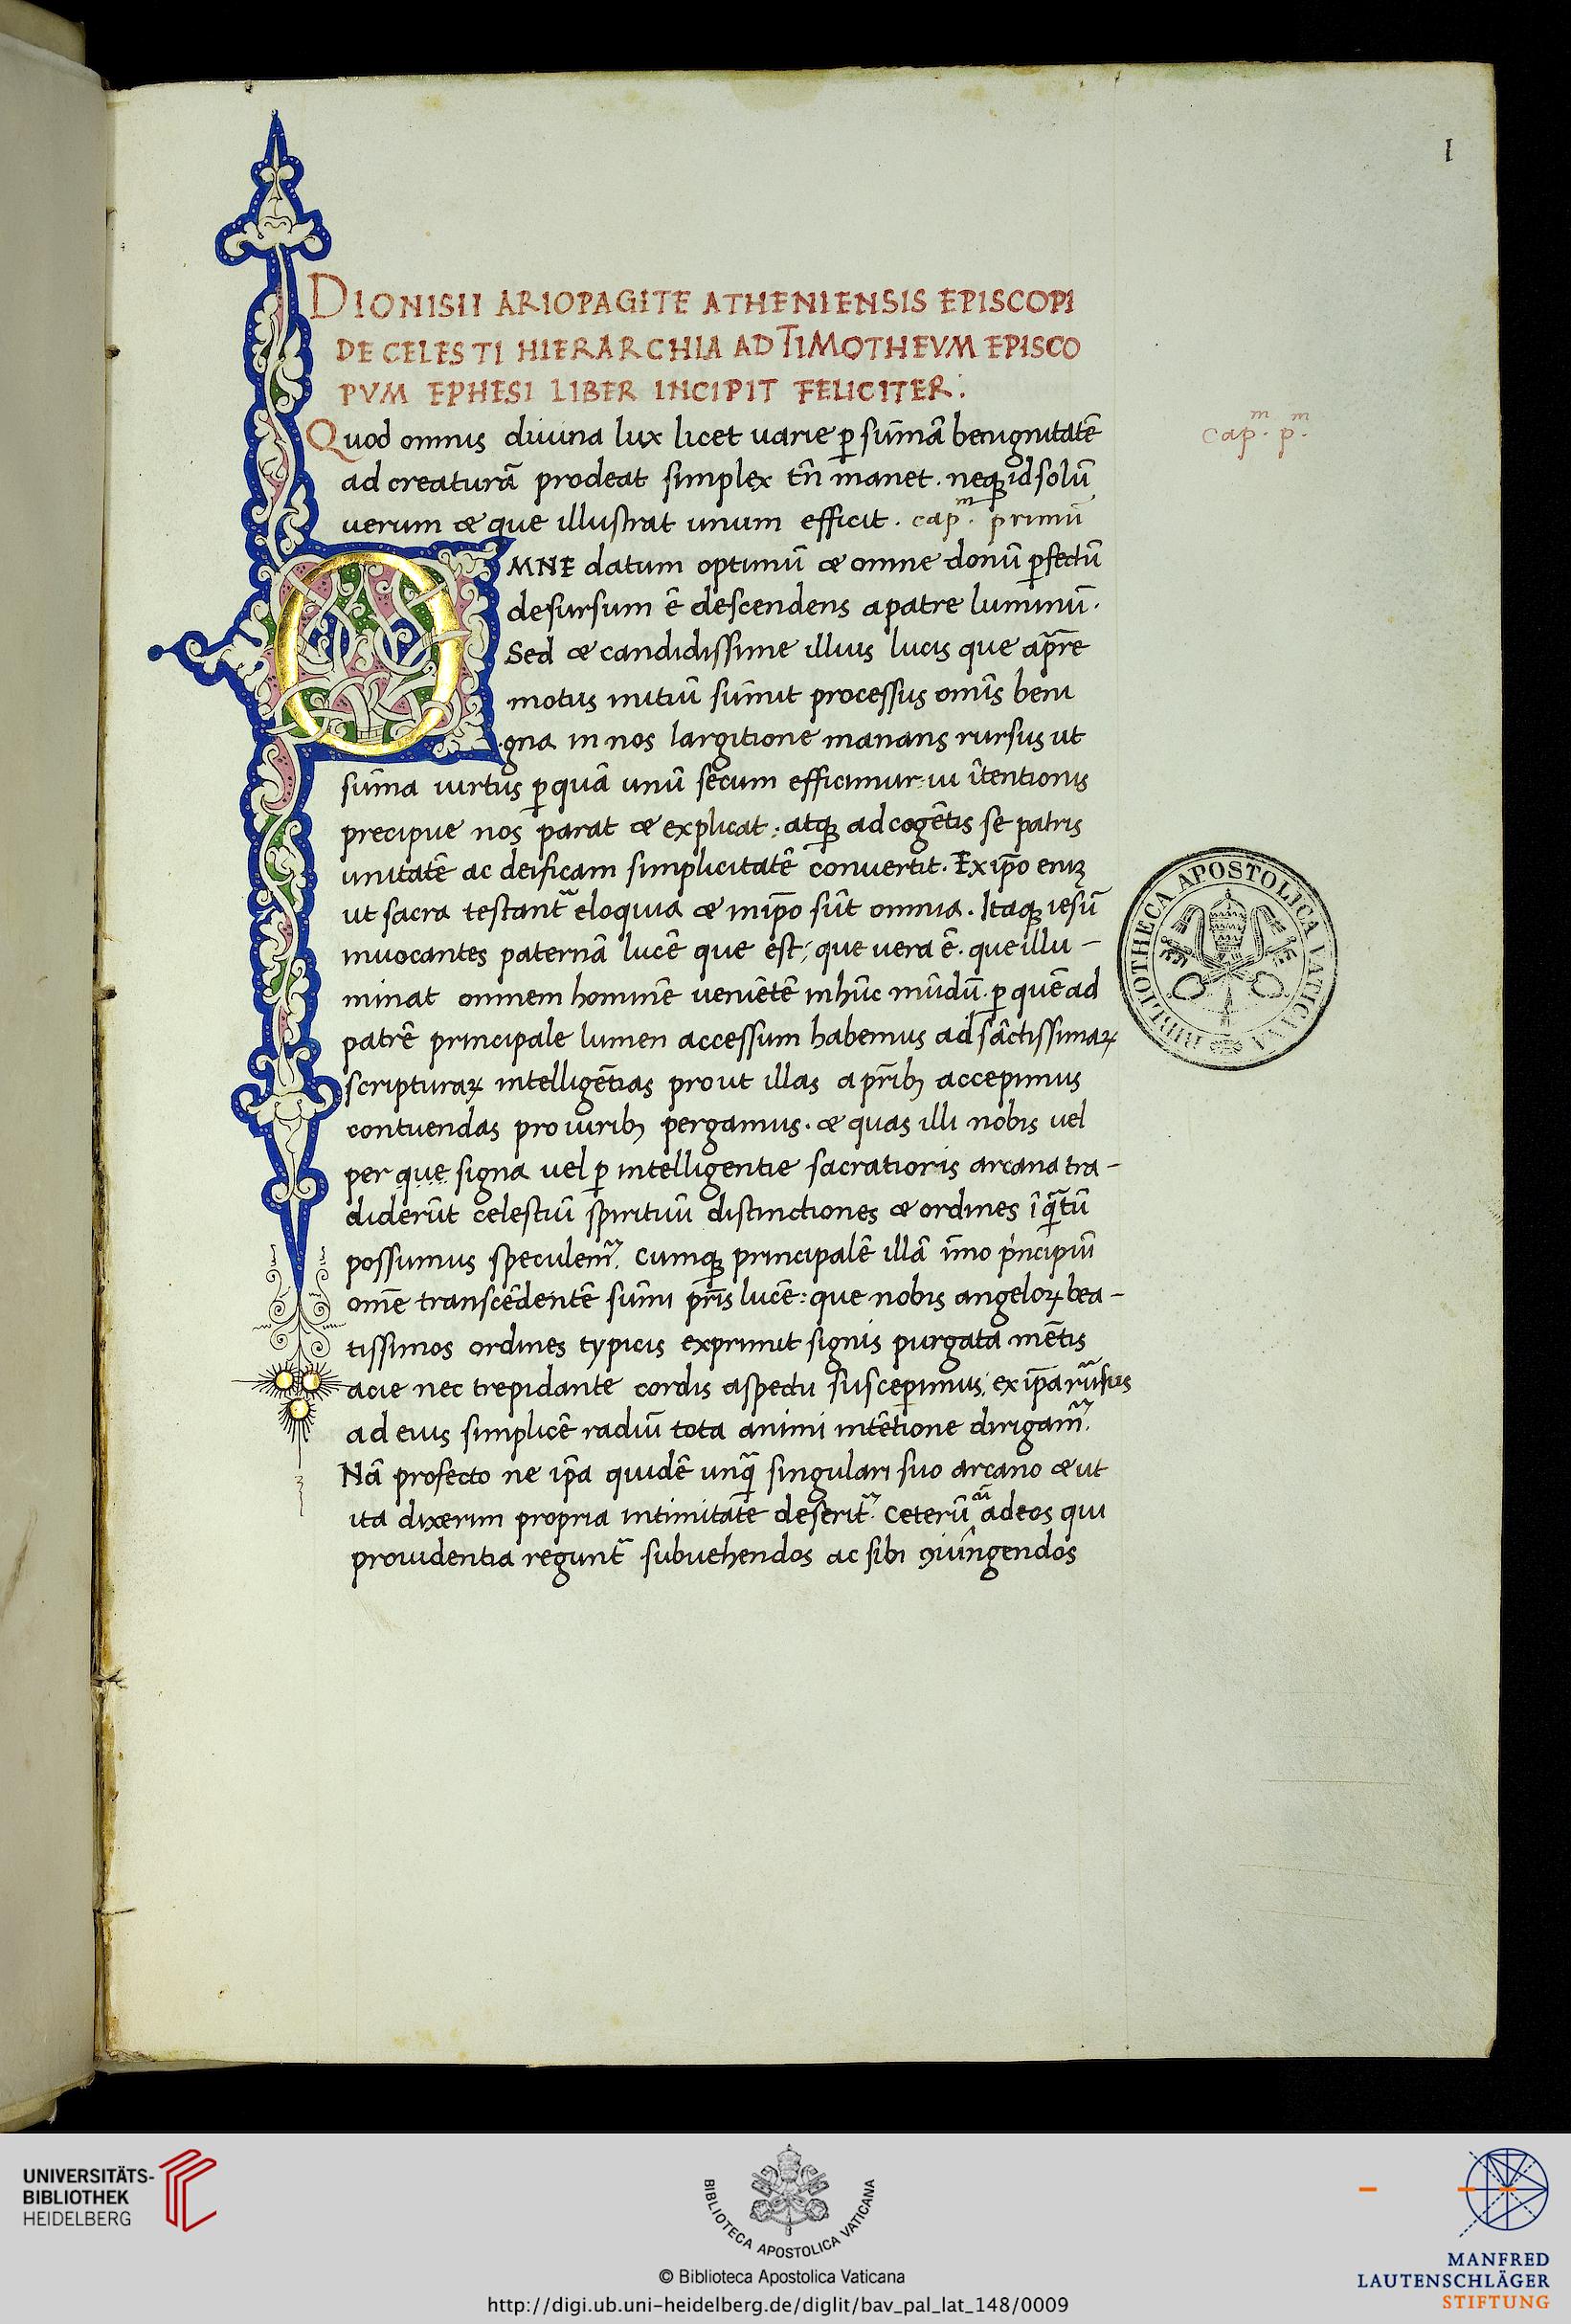 I
DIONISII ARIOPAGITE ATHENIENSIS EPISCOPI
DE CELESTI HIERARCHIA AD TIMOTHEVM EPISCO
PVM EPHESI LIBER INCIPIT FELICITER:
Quod omnis diuina lux licet uarie ꝑ sum̄ā benignitatē
cap.ᵐ p.ᵐ
ad creaturā prodeat simplex tn̄ manet. neqꝫ id solū
uerum & que illustrat unum efficit. capᵐ. primū
OMNE datum optimū & omne donū ꝑfectū
desursum ē descendens a patre luminū.
Sed & candidissime illius lucis que a pr̄e
motus initiū sumit processus om̄is beni
gna in nos largitione manans rursus ut
sum̄a uirtus ꝑ quā unū secum efficimur ui ītentionis
precipue nos parat & explicat: atqꝫ ad cogētis se patris
unitatē ac deificam simplicitatē conuertit. Ex ip̄o eniꝫ
ut sacra testant᷑ eloquia & in ip̄o sūt omnia. Itaqꝫ iesū
inuocantes paternā lucē que est; que uera ē. que illu-
minat omnem hominē ueniētē in hūc mūdū. ꝑ quē ad
patrē principale lumen accessum habemus ad sāctissimaꝝ
scripturaꝝ intelligētias prout illas a pr̄ibꝫ accepimus
contuendas pro uiribꝫ pergamus. & quas illi nobis uel
per que signa uel ꝑ intelligentie sacratioris arcana tra-
diderūt celestiū spirituū distinctiones & ordines ī qᷓtū
possumus speculem᷑. Cumqꝫ principalē illā im̄o pͥncipiū
om̄e transcēdentē sum̄i pr̄is lucē: que nobis angeloꝝ bea-
tissimos ordines typicis exprimit signis purgata mētis
acie nec trepidante cordis aspectu suscepimus; ex ip̄a rursus
ad eius simplicē radiū tota animi intētione dirigam᷑.
Nā profecto ne ip̄a quidē unqᷓ singulari suo arcano & ut
ita dixerim propria intimitate deserit᷑. Ceterū cū ad eos qui
prouidentia regunt᷑ subuehendos ac sibi ꝯiūngendos
BIBLIOTHECA APOSTOLICA VATICANA
UNIVERSITÄTS-
BIBLIOTHEK
HEIDELBERG
BIBLIOTECA APOSTOLICA VATICANA
© Biblioteca Apostolica Vaticana
http://digi.ub.uni-heidelberg.de/diglit/bav_pal_lat_148/0009
MANFRED
LAUTENSCHLÄGER
STIFTUNG